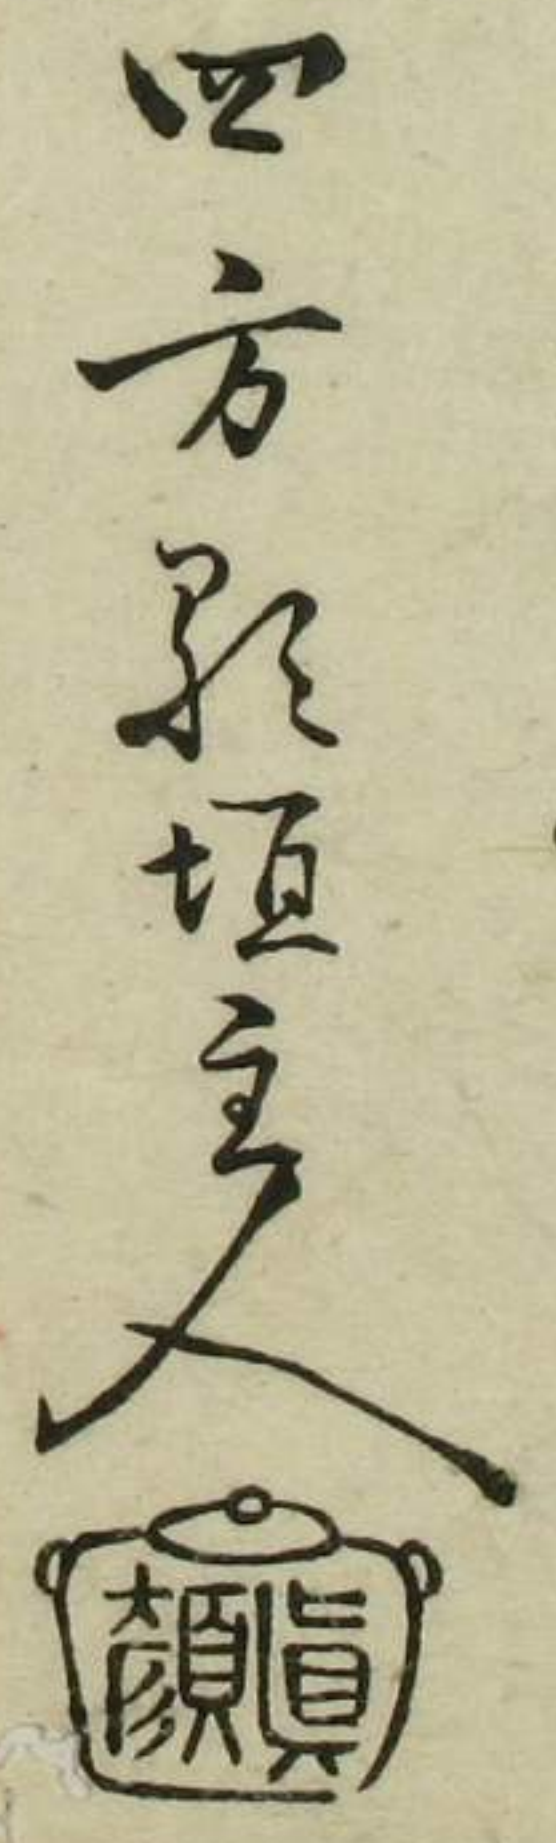 四方歌垣主人
真顔